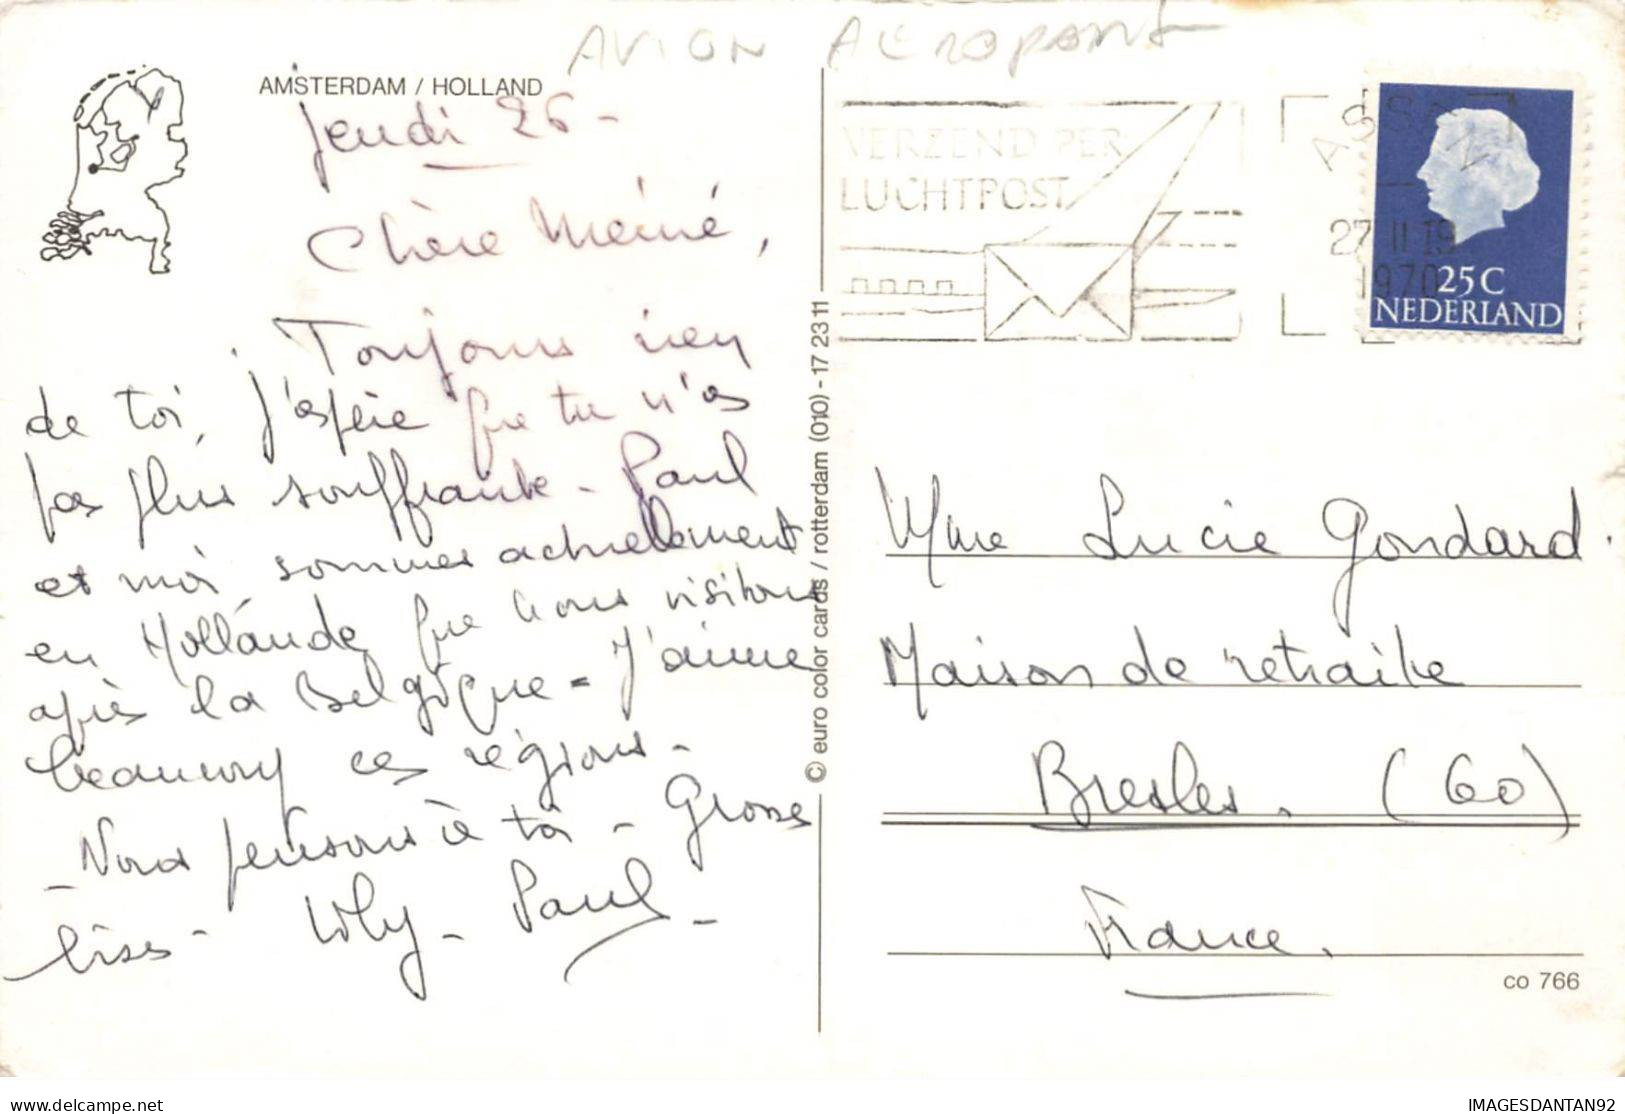 AVION
AMSTERDAM / HOLLAND
jeudi 26 -
Chère Mémé,
Toujours rien
de toi, j'espère que tu n'es
pas plus souffrante - Paul
et moi sommes actuellement
en Hollande que nous visitons
après la Belgique - J'aime
beaucoup ces régions -
- Nous pensons à toi - Grosses
bises - Paul -
© euro color cards / rotterdam (010) - 17 23 11
VERZEND PER
LUCHTPOST
ASSEN
27 II 19
1970
25 C
NEDERLAND
Mme Lucie Gondard.
Maison de retraite
Bresles. (60)
France.
co 766
delcampe.net
IMAGESDANTAN92